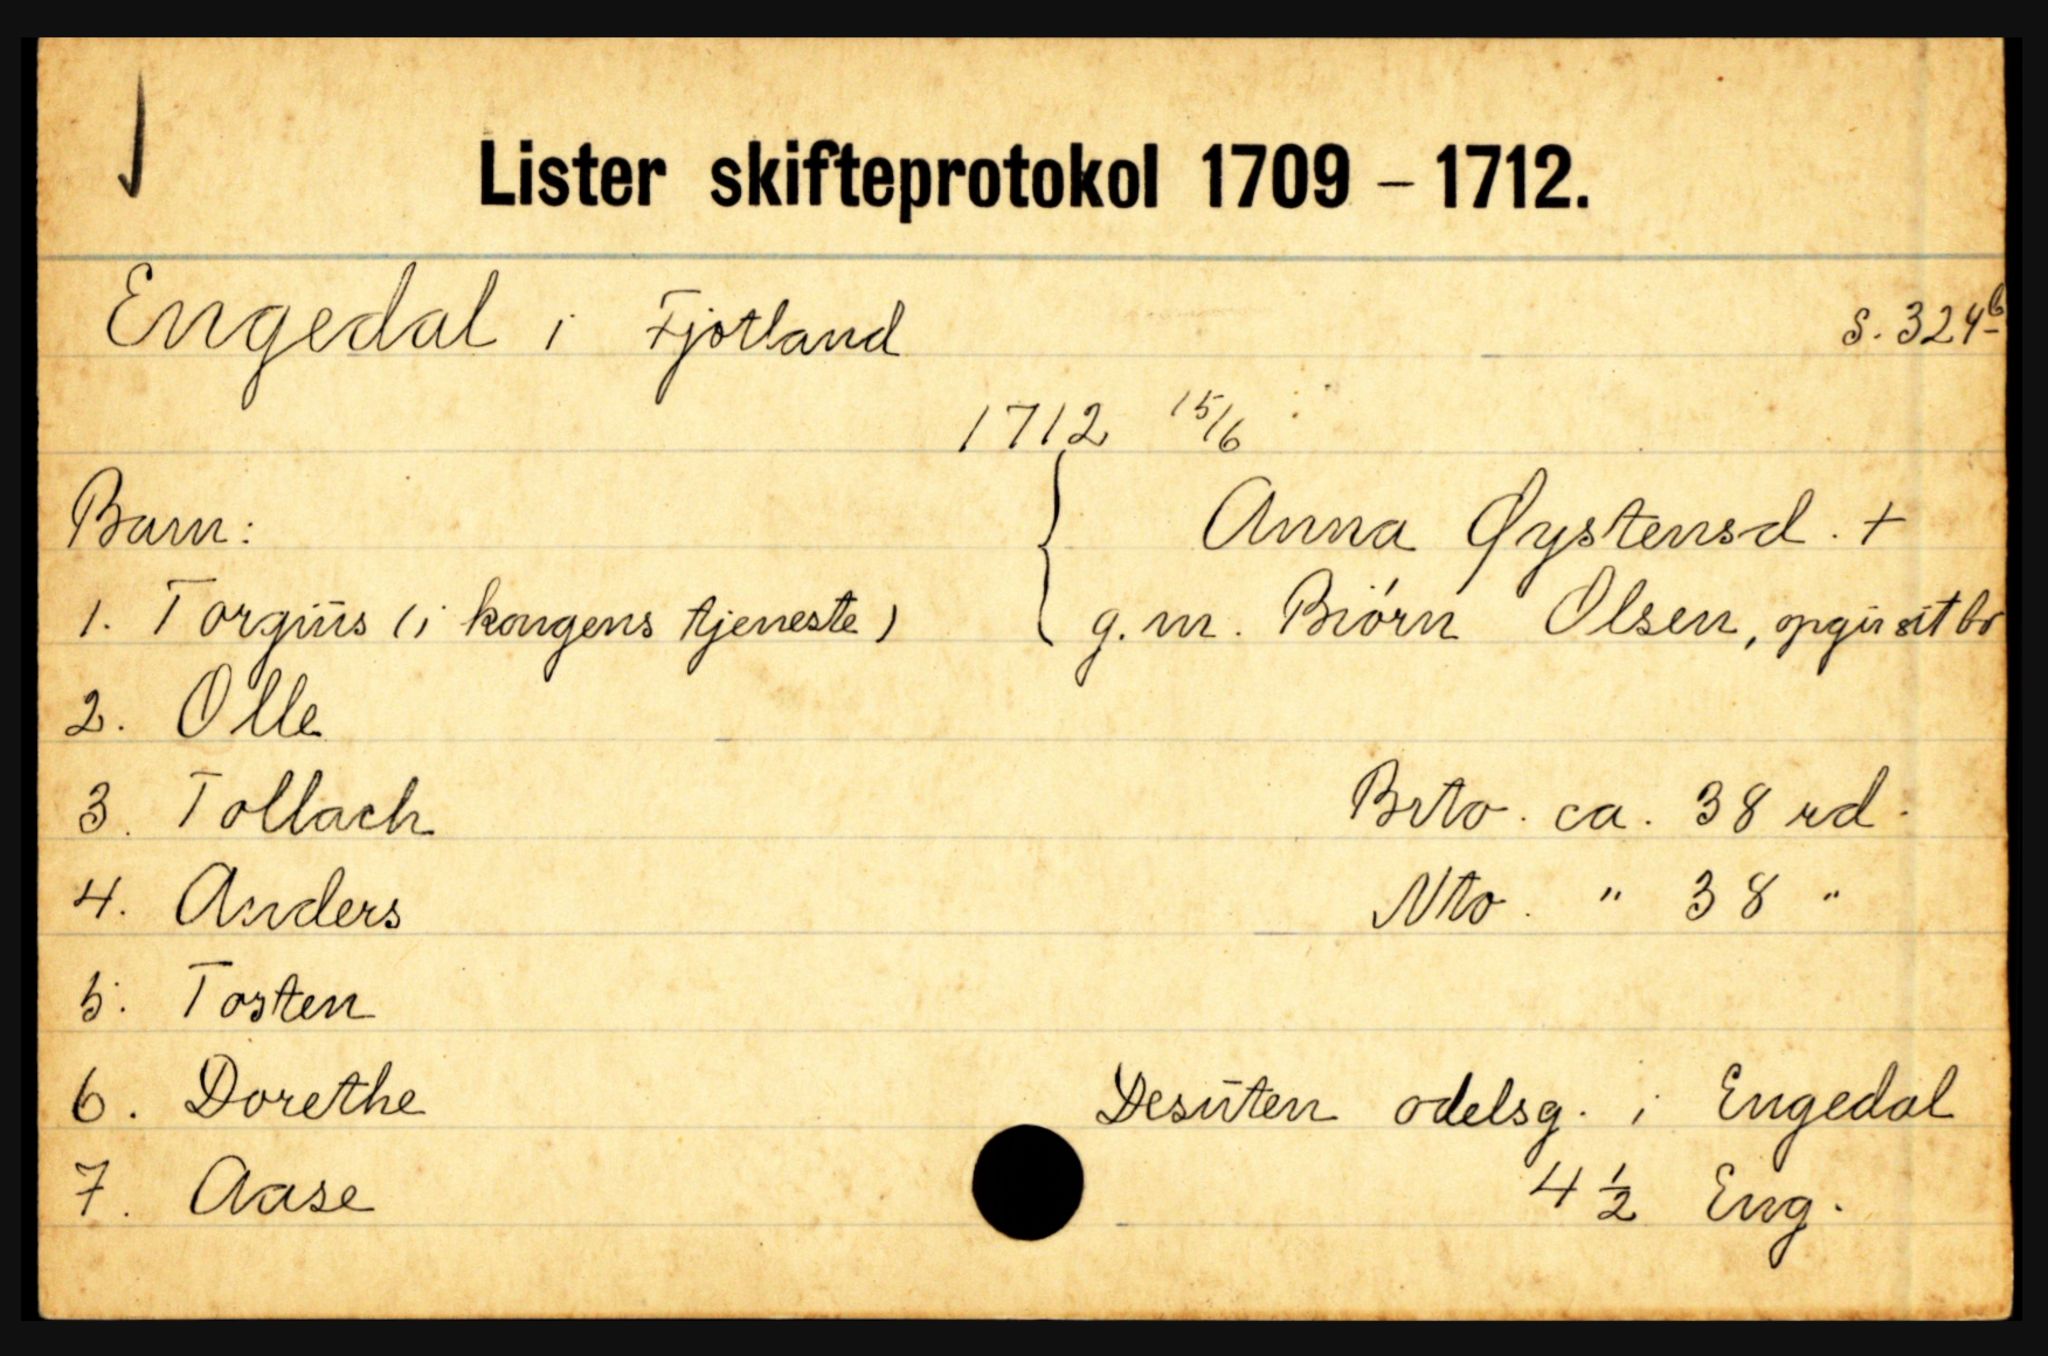 Lister skifteprotokol 1709 – 1712.
Engedal i Fjotland s. 324b
1712 15/6
Barn: Anna Øystensd. +
1. Torgiüs (i kongens tjeneste) g. m. Biórn Olsen, opgir sit bo
2. Olle
3. Tollach Brto. ca. 38 rd.
4. Anders Nto. " 38 "
5. Tosten
6. Dorethe Desūten odelsg. i Engedal
7. Aase 4 1/2 Eng.